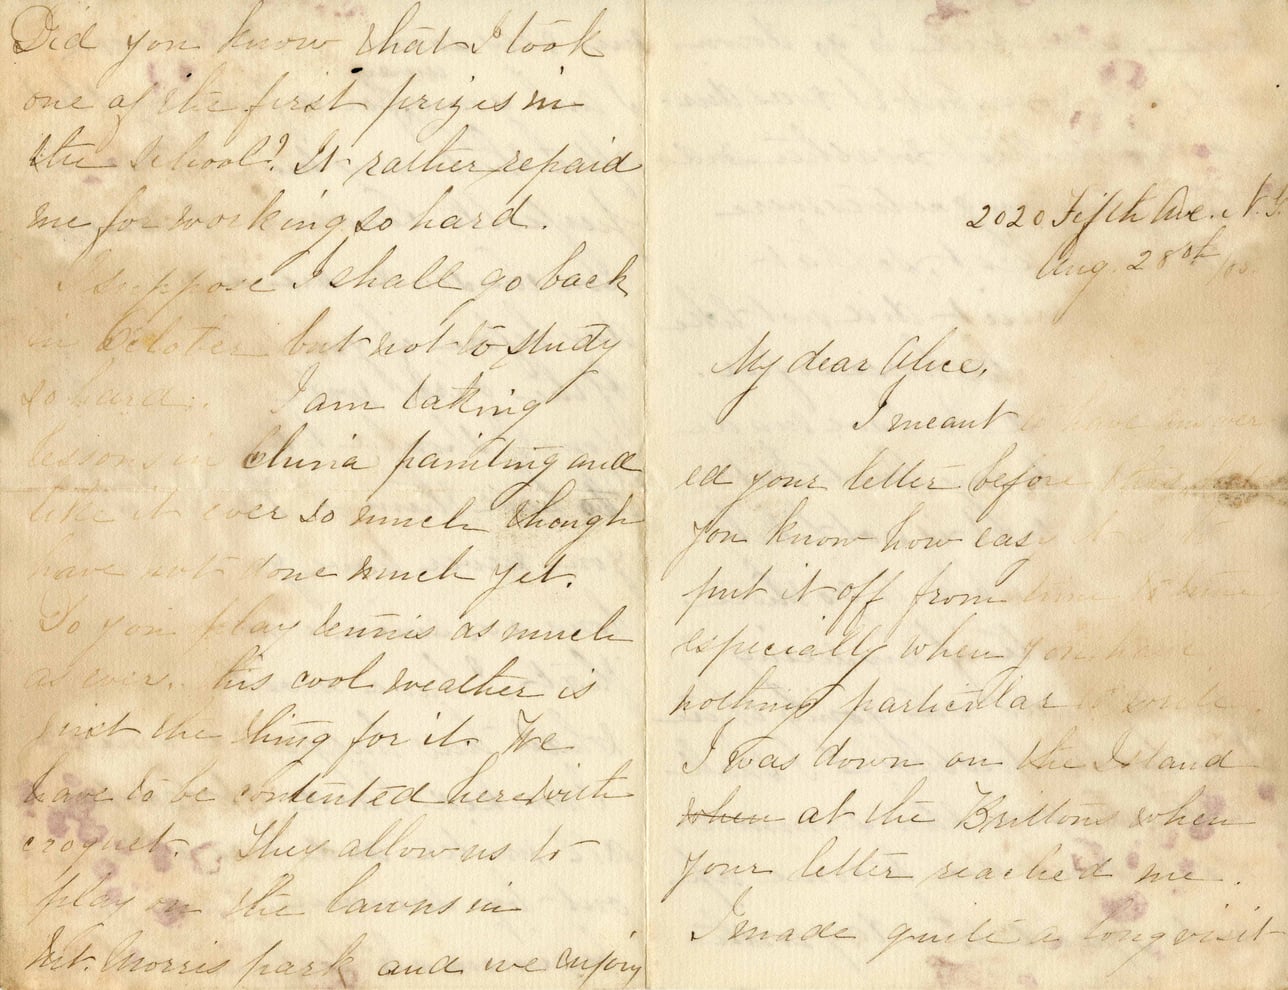 Did you know that I took
one of the first prizes in
the school? It rather repaid
me for working so hard.
I suppose I shall go back
in October but not to study
so hard. I am taking
lessons in China painting and
like it ever so much though
have not done much yet.
Do you play tennis as much
as ever. This cool weather is
just the thing for it. We
have to be contented here with
croquet. They allow us to
play on the lawns in
Mt. Morris park and we enjoy
2020 Fifth Ave. N.Y.
Aug. 28th
My dear Alice,
I meant to have answer
ed your letter before this, but
you know how easy it is to
put it off from time to time,
especially when you have
nothing particular to write.
I was down on the Island
when at the Brittons when
your letter reached me.
I made quite a long visit